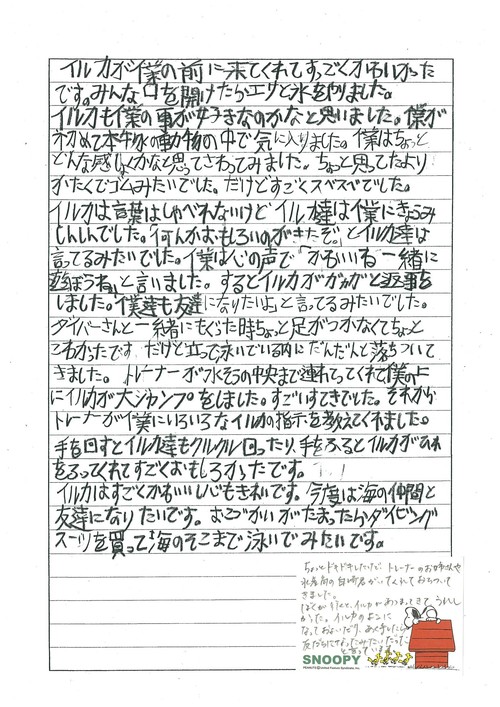 イルカが僕の前に来てくれてすっごくかわいかった
です。みんな口を開けたらエサと氷をやりました。
イルカも僕の事が好きなのかなと思いました。僕が
初めて本牛氷の動物の中で気に入りました。僕はちょっと
どんな感しょくかなと思ってさわってみました。ちょっと思ってたより
かたくてゴムみたいでした。だけどすごくスベスベでした。
イルカは言葉はしゃべれないけどイルカ達は僕にきょうみ
しんしんでした。「何んかおもしろいのがきたぞ。」とイルカ達は
言ってるみたいでした。僕は心の声で「かわいいね一緒に
遊ぼうね。」と言いました。するとイルカがガガガと返事を
しました。「僕達も友達になりたいよ」と言ってるみたいでした。
ダイバーさんと一緒にもぐった時ちょっと足がつかなくてちょっと
こわかったです。だけど立って泳いでいる内にだんだんと落ちついて
きました。トレーナーが水そうの中央まで連れてってくれて僕の上
にイルカが大ジャンプをしました。すごいすてきでした。それから
トレーナーが僕にいろいろなイルカの指示を教えてくれました。
手を回すとイルカ達もクルクル回ったり、手をふるとイルカがひれ
をふってくれてすごくおもしろかったです。
イルカはすごくかわいいし心もきれいです。今度は海の仲間と
友達になりたいです。おこづかいがたまったらダイビング
スーツを買って海のそこまで泳いでみたいです。
ちょっとドキドキしたけど、トレーナーのお姉さんや
きました。
うれし
かった。イルカのよこに
SNOOPY